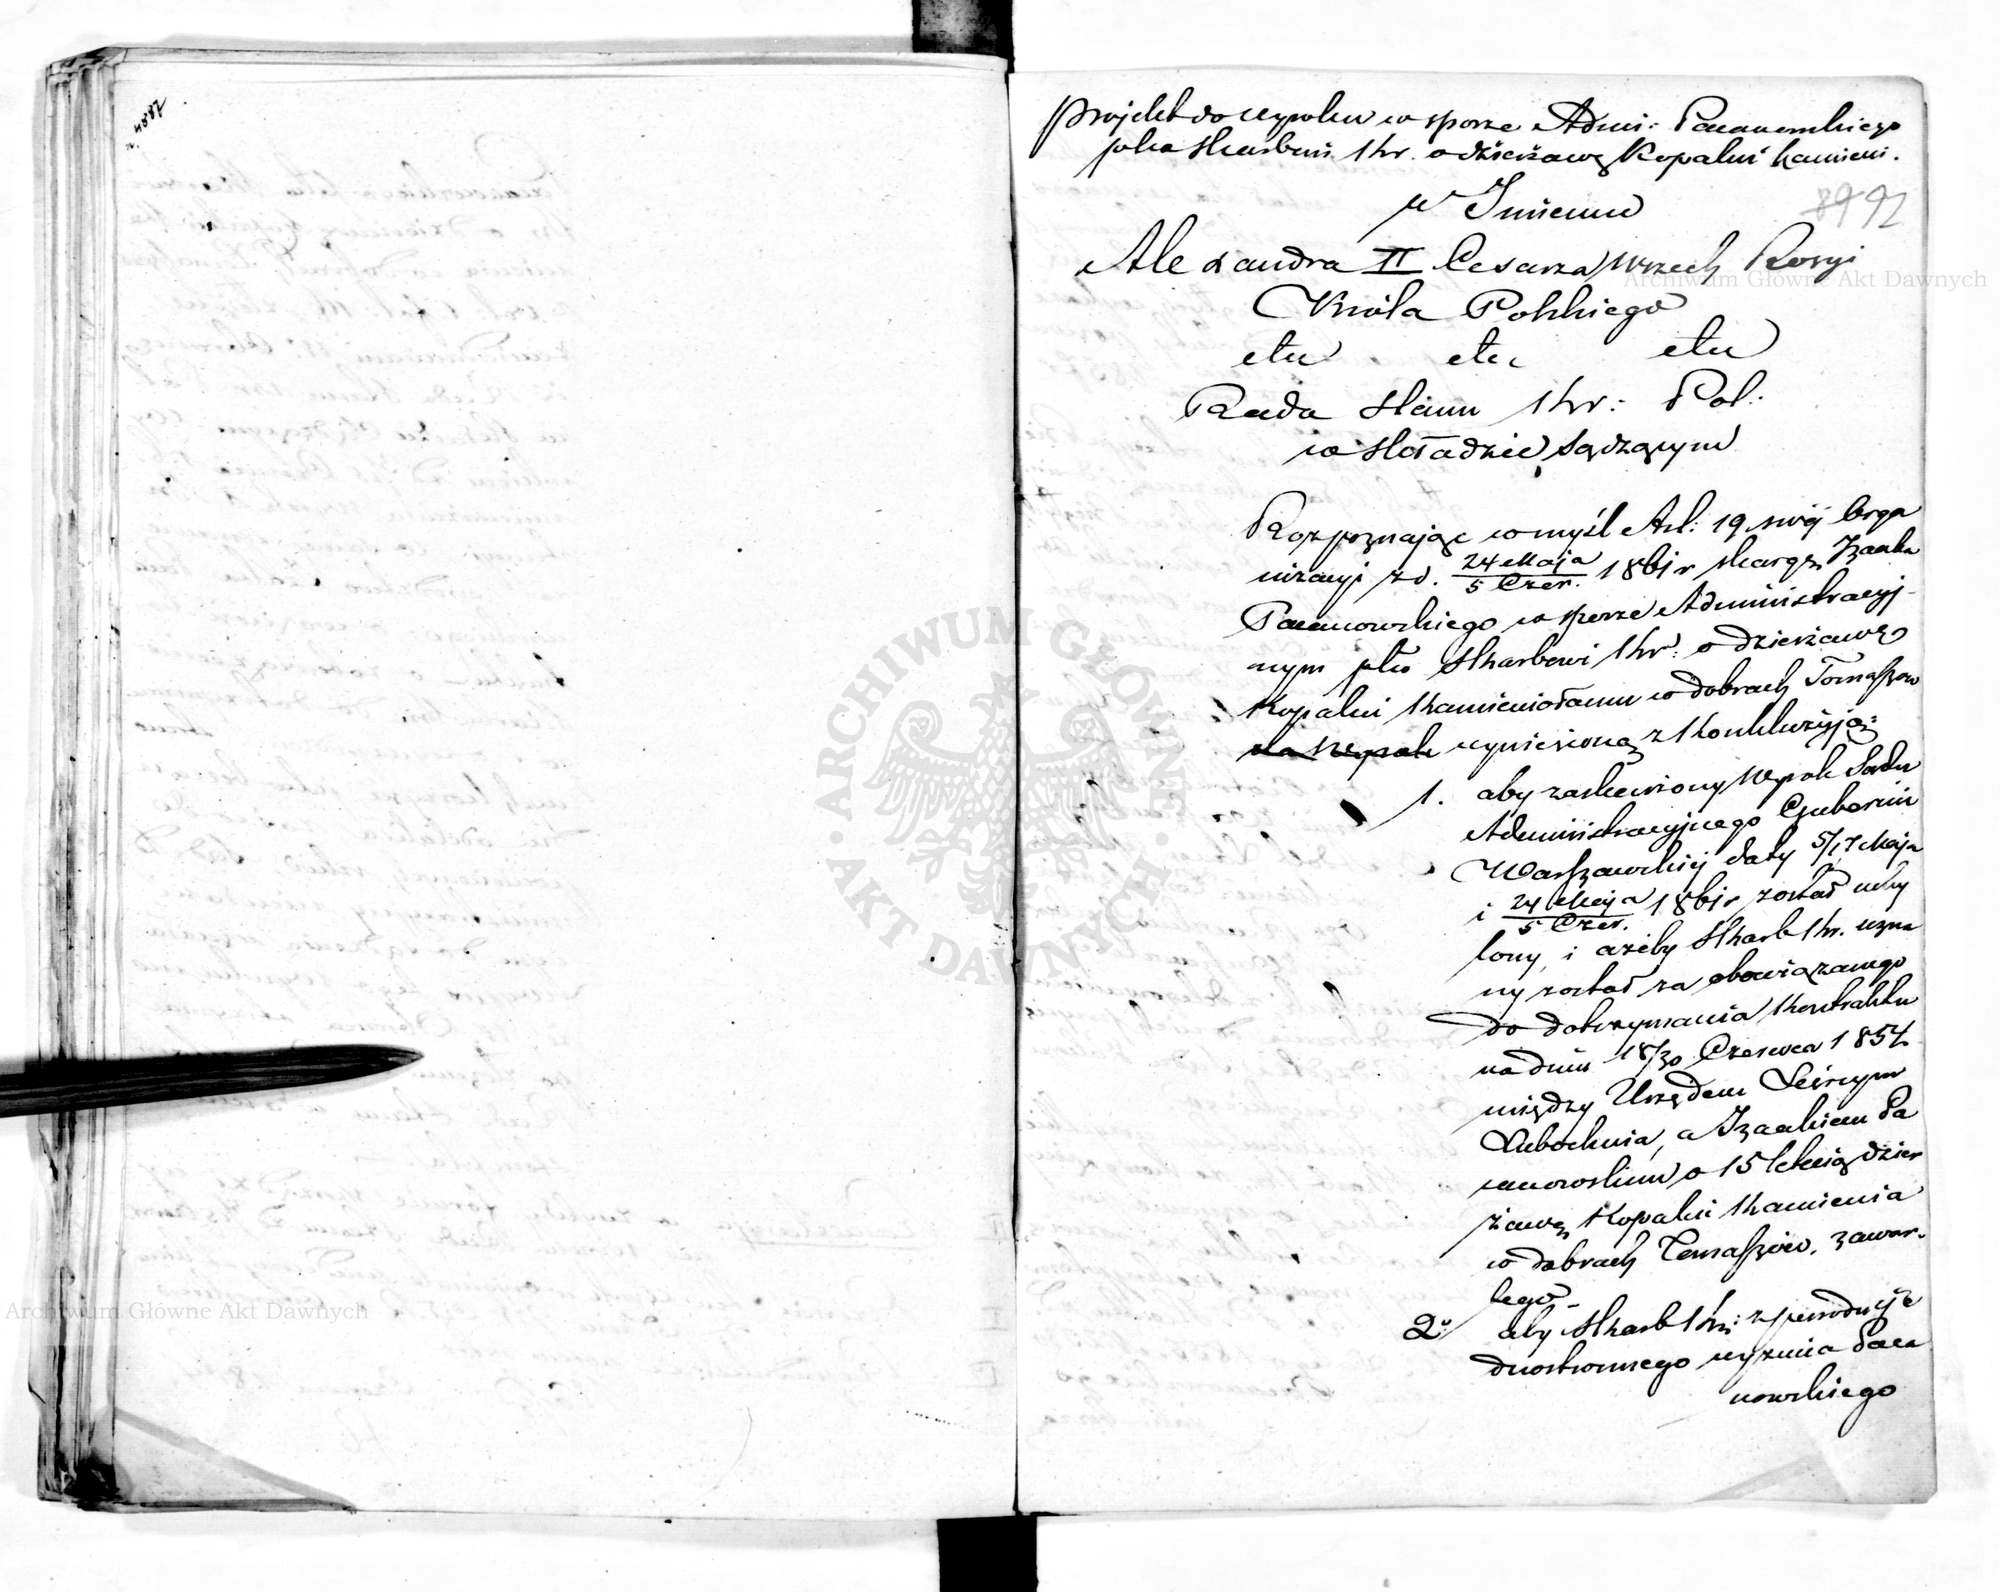 n. 4882
Projekt do wyroku w sporze Admi: Pacanowskiego
plko Skarbowi Kr. o dzierżawę Kopalni kamieni.
89 92
w Imieniu
Alexandra II Cesarza wszech Rosyi
Króla Polskiego
etc etc etc
Rada Stanu Kr: Pol:
w składzie Sądzącym
Rozpoznając w myśl Art: 19 swéj Orga
nizacyi z d. 24 Maja / 5 Czer. 1861 r skargę Izaaka
Pacanowskiego w sporze Administracyj-
nym plko Skarbowi Kr: o dzierżawę
Kopalni Kamieniołamu w dobrach Tomaszow
na Wyrok wyniesioną z Konkluzyją:
1. aby zaskarżony Wyrok Sądu
Administracyjnego Gubernii
Warszawskiej daty 5/17 Maja
i 24 Maja / 5 Czer. 1861 r został uchy
lony, i ażeby Skarb Kr. uzna
ny został za obowiązanego
do dotrzymania Kontraktu
na dniu 18/30 Czerwca 1857
między Urzędem Leśnym
Lubochnia, a Izaakiem Pa
canowskim o 15 letnią dzier
żawę Kopalni Kamienia
w dobrach Tomaszów, zawar-
tego_
2º aby Skarb Kr: z powodu je
dnostronnego wyzucia Paca
nowskiego
Archiwum Główne Akt Dawnych
Archiwum Główne Akt Dawnych
ARCHIWUM GŁÓWNE · AKT DAWNYCH ·